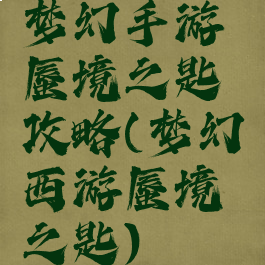 梦幻手游
蜃境之匙
攻略(梦幻
西游蜃境
之匙)